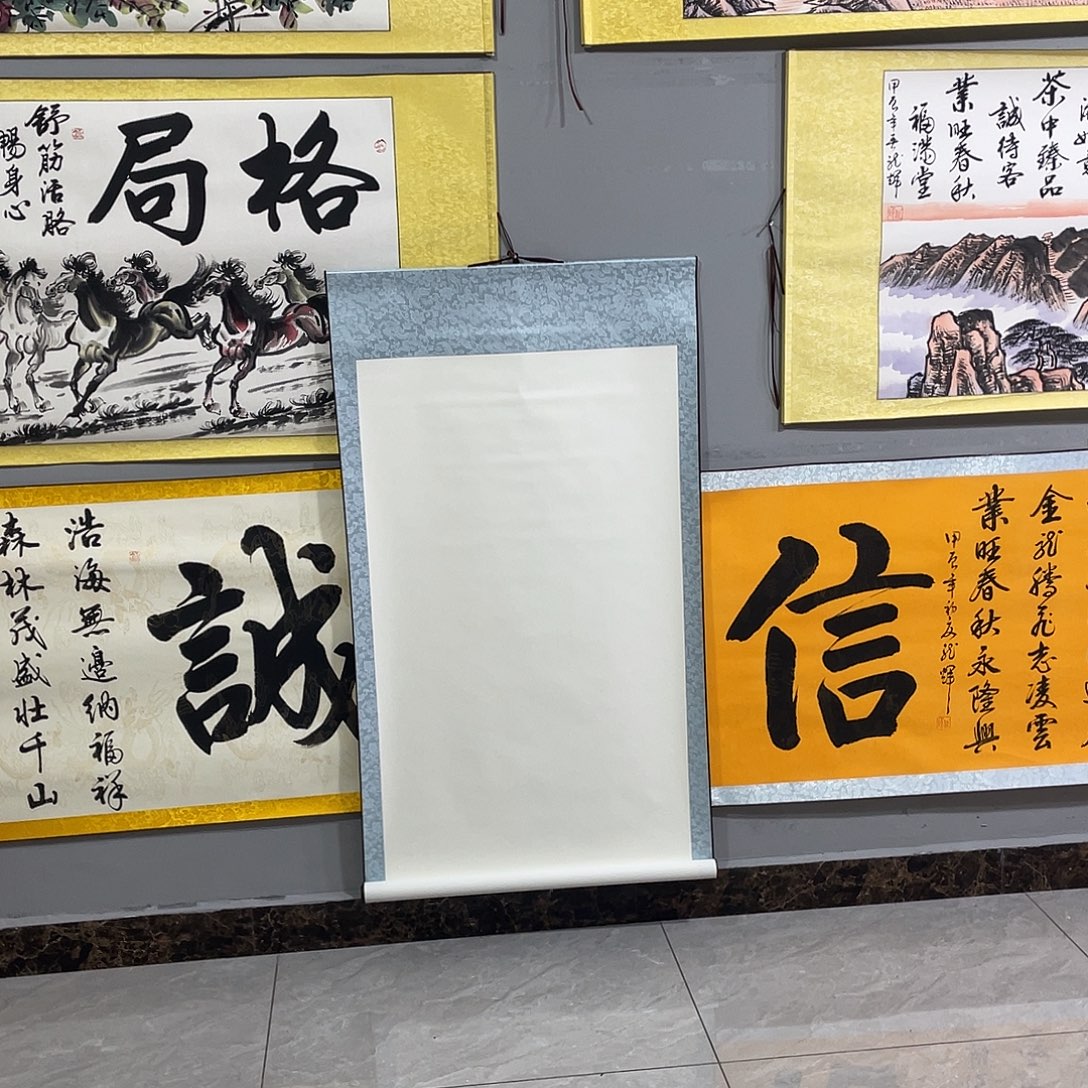 格局
舒筋活胳
暢身心
茶中臻品
誠待客
業旺春秋
福滿堂
甲辰年
誠
浩海無邊納福祥
森林茂盛壯千山
金龍騰飛志凌雲
業旺春秋永隆興
甲辰年初夏龍輝
信